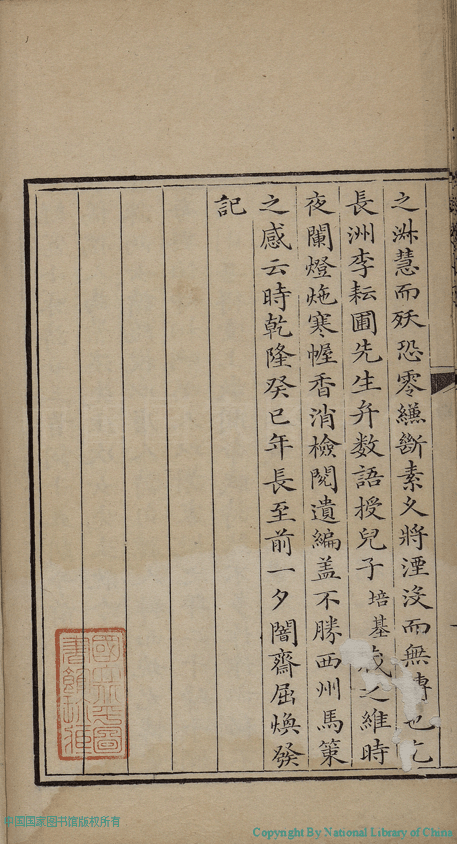 之淑慧而殀恐零縑斷素久將湮沒而無傳也乞
長洲李耘圃先生弁数語授兒子培基藏之維時
夜闌燈炧寒幄香消檢閱遺編盖不勝西州馬策
之感云時乾隆癸巳年長至前一夕闇齋屈煥發
記
國立北平圖
書館珍藏
中国国家图书馆版权所有
Copyright By National Library of China